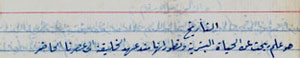 التاريخ
هو علم يبحث عن الحياة البشرية وتطوراتها منذ عهد الخليقة الى عصرنا الحاضر